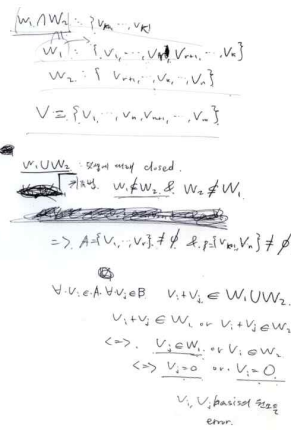 W₁∩W₂ : { vₖ, ⋯, vₖ}
W₁ : { v₁, ⋯, vᵣ, vᵣ₊₁, ⋯, vₖ}
W₂ : { vᵣ₊₁, ⋯, vₖ, ⋯, vₙ}
V = {v₁, ⋯, vₙ, vₙ₊₁, ⋯, vₘ}
W₁∪W₂ closed.
W₁⊄W₂ & W₂⊄W₁
=> A={v₁, ⋯, vᵣ}≠∅ & B={vₖ₊₁, vₙ}≠∅
∀vᵢ∈A, ∀vⱼ∈B vᵢ+vⱼ ∈ W₁∪W₂.
vᵢ+vⱼ ∈ W₁ or vᵢ+vⱼ∈W₂
<=> vⱼ∈W₁ or vᵢ∈W₂
<=> vⱼ=0 or vᵢ=0.
vᵢ, vⱼ basis의 원소
error.